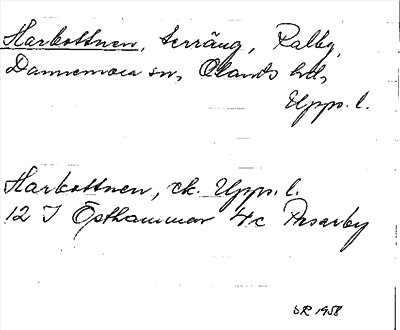 Harbottnen, terräng, Ralby,
Dannemora sn, Olands hd,
Upps. l.
Harbottnen, ek. Upps. l.
12 I Östhammar 4c Ansarby
SR 1958